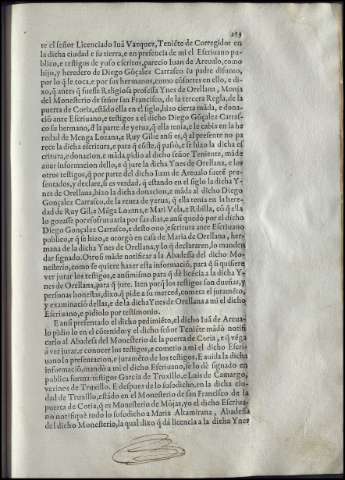 te el señor Licenciado Iuã Vazquez, Teniẽte de Corregidor en
la dicha ciudad e su tierra, e en presencia de mi el Escriuano pu-
blico, e testigos de yuso escritos, parecio Iuan de Areualo, como
hijo, y heredero de Diego Gõçalez Carrasco su padre difunto,
por lo q̃ le toca, e por sus hermanos, como cõsortes en ello, e di-
xo, q̃ antes q̃ fuesse Religiosa professa Ynes de Orellana, Monja
del Monesterio de señor san Francisco, de la tercera Regla, de la
puerta de Coria, estãdo ella en el siglo, hizo cierta mãda, e dona-
ciõ ante Escriuano, e testigos a el dicho Diego Gõçalez Carras-
co su hermano, de la parte de yerua, q̃ ella tenia, e le cabia en la he
redad de Menga Lozana, e Ruy Gil: e ansi es, q̃ al presente no pa
rece la dicha escritura, e para q̃ coste, q̃ passò, e se hizo la dicha es
critura, e donacion, e mãda, pidio al dicho señor Teniente, mãde
auer informacion dello, a q̃ jure la dicha Ynes de Orellana, e los
otros testigos, q̃ por parte del dicho Iuan de Areualo fuerẽ pre-
sentados, y declare, si es verdad, q̃ estando en el siglo la dicha Y-
nes de Orellana, hizo la dicha donacion, e mãda al dicho Diego
Gonçalez Carrasco, de la renta de yerua, q̃ ella tenia en la here-
dad de Ruy Gil, e Mẽga Lozana, e Mari Vela, e Ribilla, cõ q̃ ella
lo gozasse por vsufrutuaria por sus dias, e ansi quedò por el dicho
Diego Gonçalez Carrasco, e desto otorgò escritura ante Escriuano
publico, e q̃ se hizo, e otorgò en casa de Maria de Orellana, her-
mana de la dicha Ynes de Orellana, y lo q̃ declararen, lo manden
dar signado. Otro si mãde notificar a la Abadessa del dicho Mo-
nesterio, como se quiere hazer esta informaciõ, para q̃ si quisiere
ver jurar los testigos, e ansimismo para q̃ dè licẽcia a la dicha Y-
nes de Orellana, para q̃ jure. Item porq̃ los testigos son dueñas, y
personas honestas, dixo, q̃ pide a su merced, cometa el juramẽto,
y examinacion dellas, e de la dicha Ynes de Orellana a mi el dicho
Escriuano, e pidiolo por testimonio.
E ansi presentado el dicho pedimiẽto, el dicho Iuã de Areua-
lo pidio lo en el cõtenido, y el dicho señor Teniẽte mãdò notifi
carlo al Abadessa del Monesterio de la puerta de Coria, e q̃ vẽga
a ver jurar, e conocer los testigos, e cometio a mi el dicho Escri-
uano la presentacion, e juramẽto de los testigos. E auida la dicha
informaciõ, mandò a mi el dicho Escriuano, se lo dè signado en
publica forma: testigos Garcia de Truxillo, e Luis de Camargo,
vezinos de Truxillo. E despues de lo susodicho, en la dicha ciu-
dad de Truxillo, estãdo en el Monesterio de san Francisco de la
puerta de Coria, q̃ es Monesterio de Mõjas, yo el dicho Escriua-
no notifiquè todo lo susodicho a Maria Altamirana, Abadessa
del dicho Monesterio, la qual dixo q̃ dà licencia a la dicha Ynes